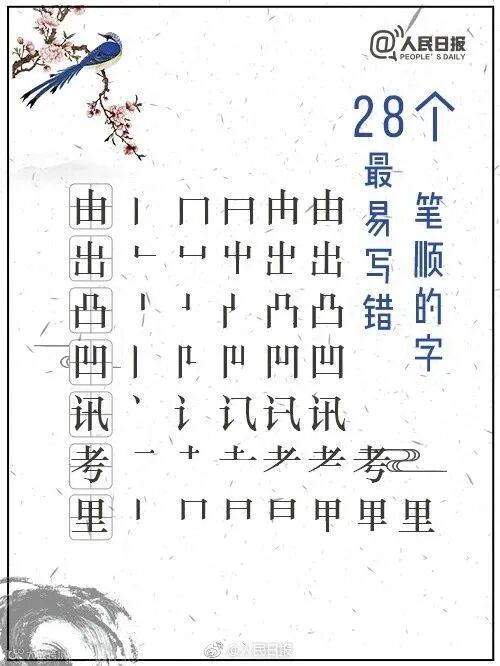 @人民日报
PEOPLE'S DAILY
28个
最易写错
笔顺的字
由 丨 冂 曰 由 由
出 ㄴ 凵 屮 出 出
凸 丨 凸 凸
凹 丨 凹 凹
讯 丶 讠 讯
考 一 十 土 耂 考
里 丨 冂 日 日 甲 里 里
@人民日报